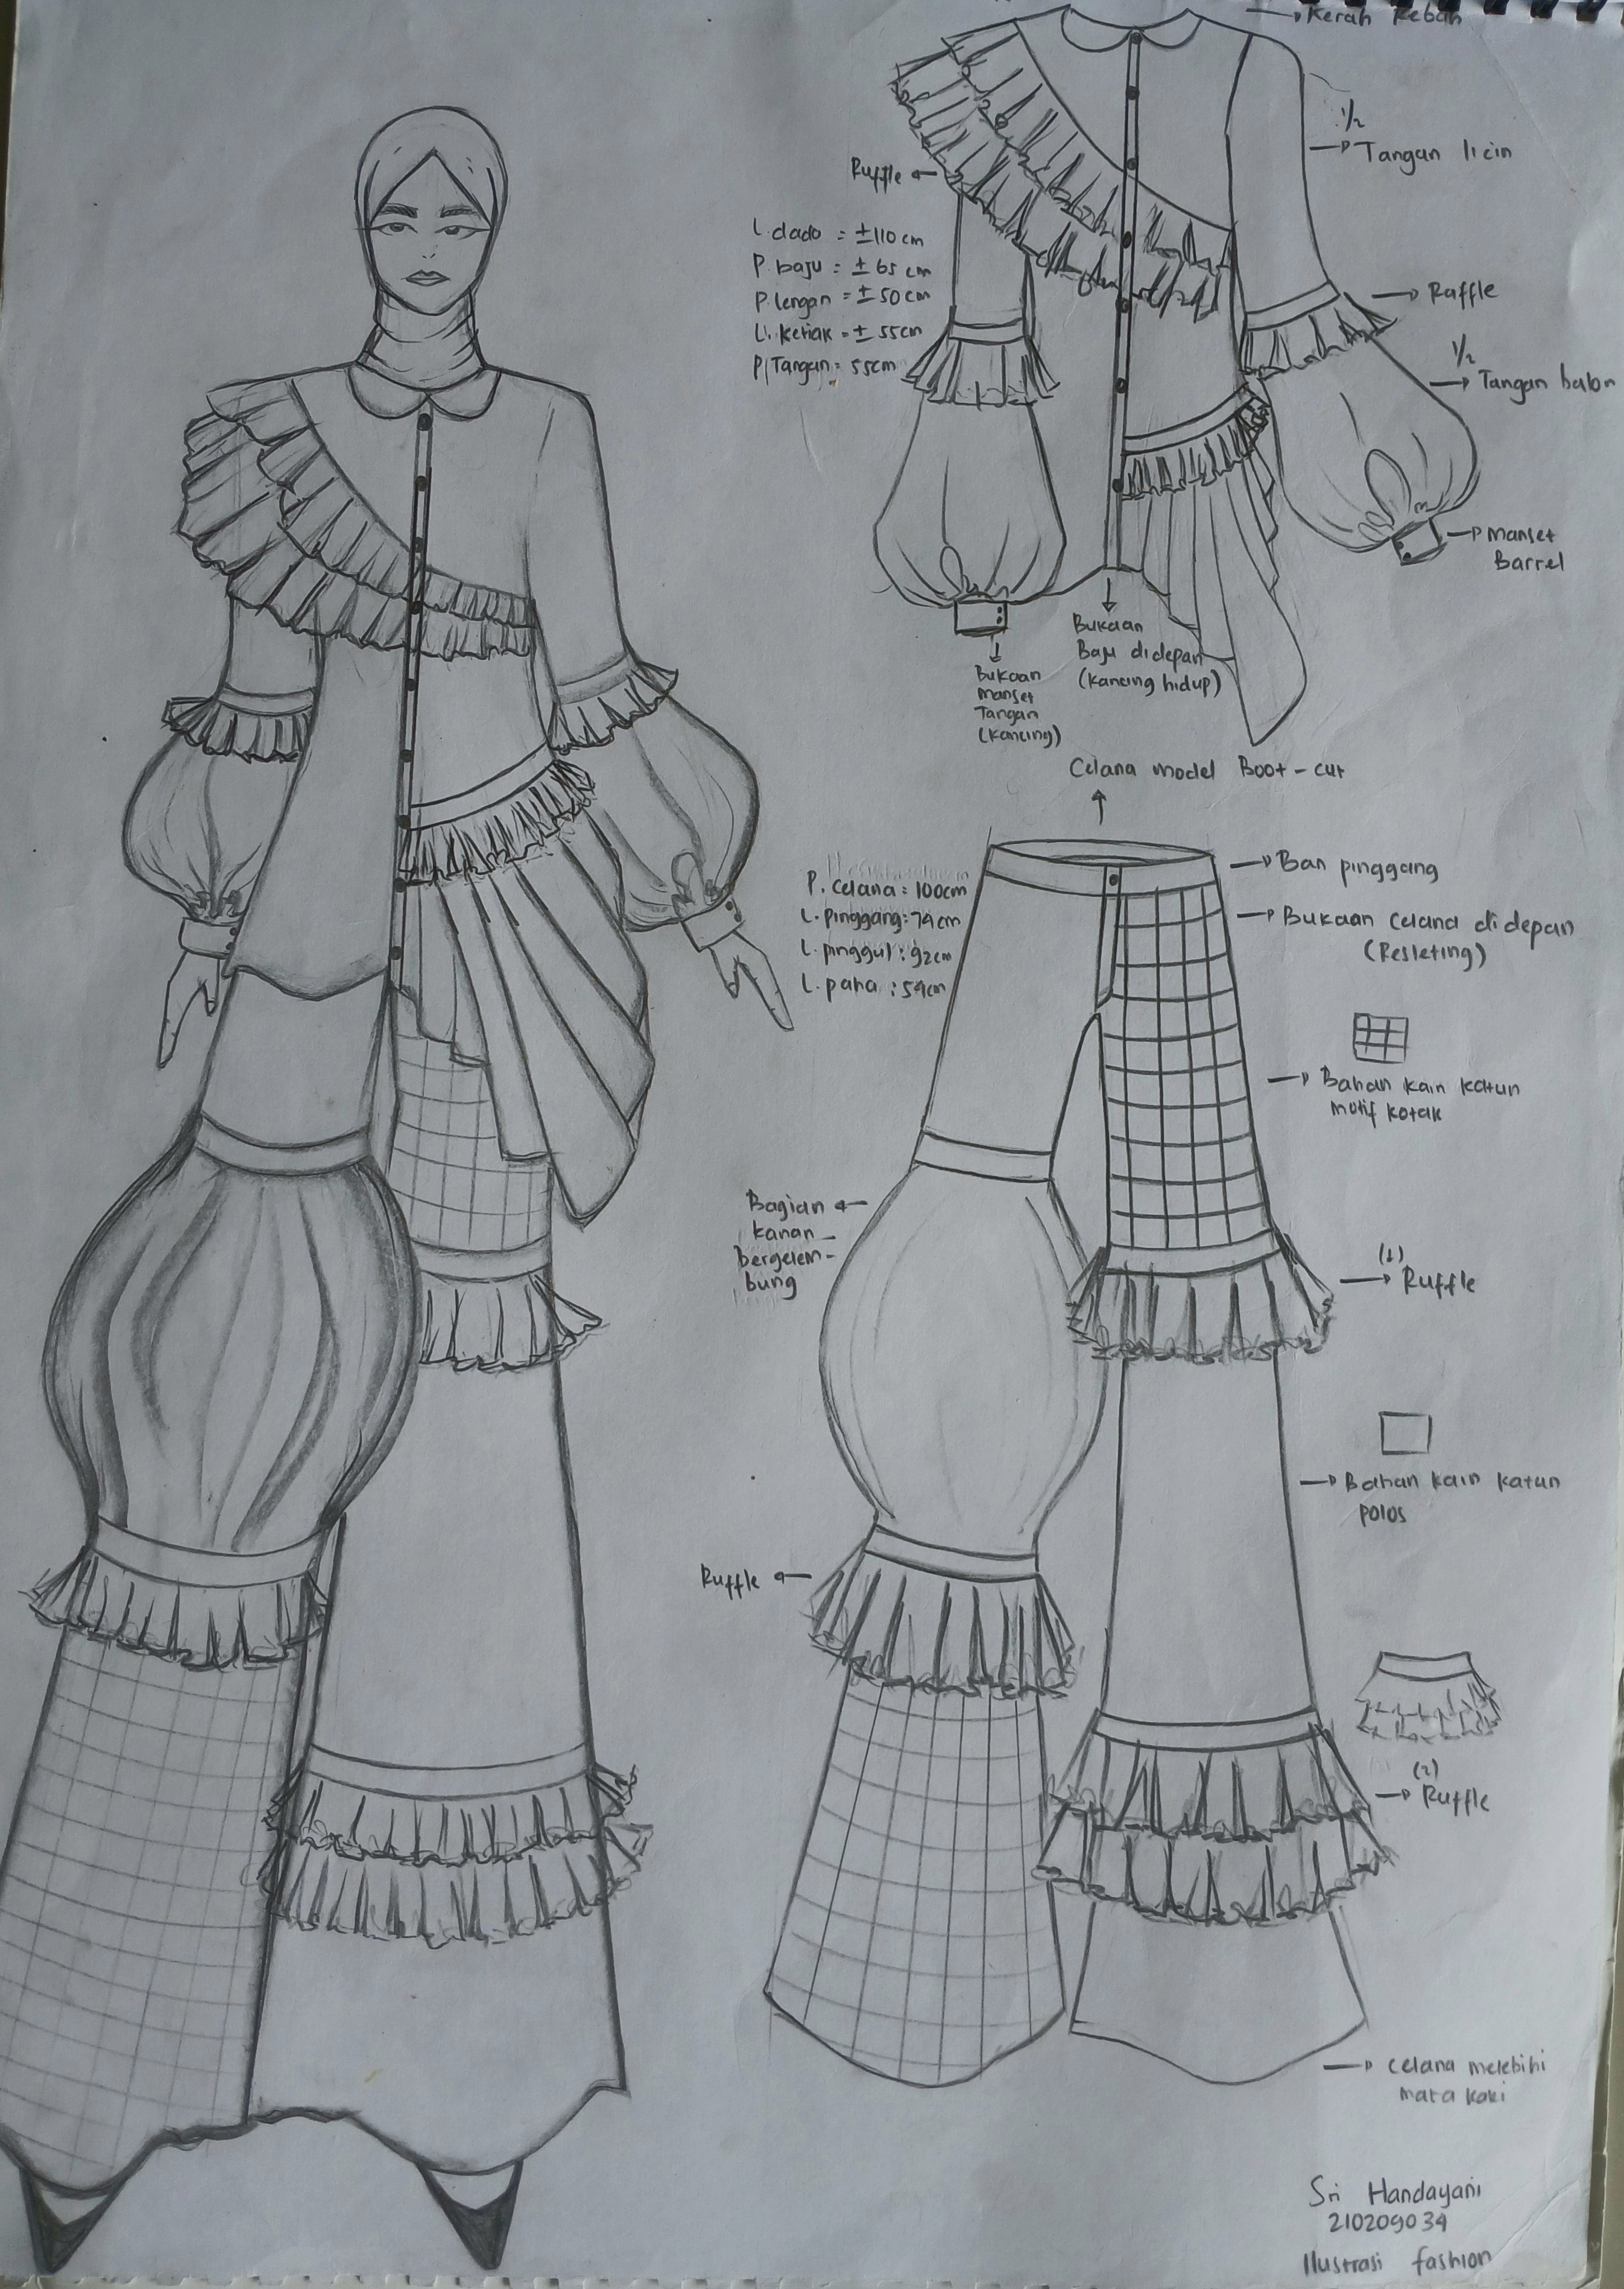 Kerah Rebah
1/2
Tangan licin
Ruffle
L. dada = ±110 cm
P. baju = ± 65 cm
P. lengan = ± 50 cm
L. ketiak = ± 55cm
P. Tangan = 55cm
Raffle
1/2
Tangan balon
Manset
Barrel
Bukaan
Baju didepan
(kancing hidup)
Bukaan
manset
Tangan
(kancing)
Celana model Boot-cut
P. celana = 100cm
L. pinggang: 74cm
L. pinggul : 92cm
L. paha : 54cm
Ban pinggang
Bukaan celana didepan
(Resleting)
Bahan kain katun
motif kotak
Bagian
kanan
bergelem-
bung
(1)
Ruffle
Bahan kain katun
polos
Ruffle
(2)
Ruffle
celana melebihi
mata kaki
Sri Handayani
210209034
Ilustrasi fashion